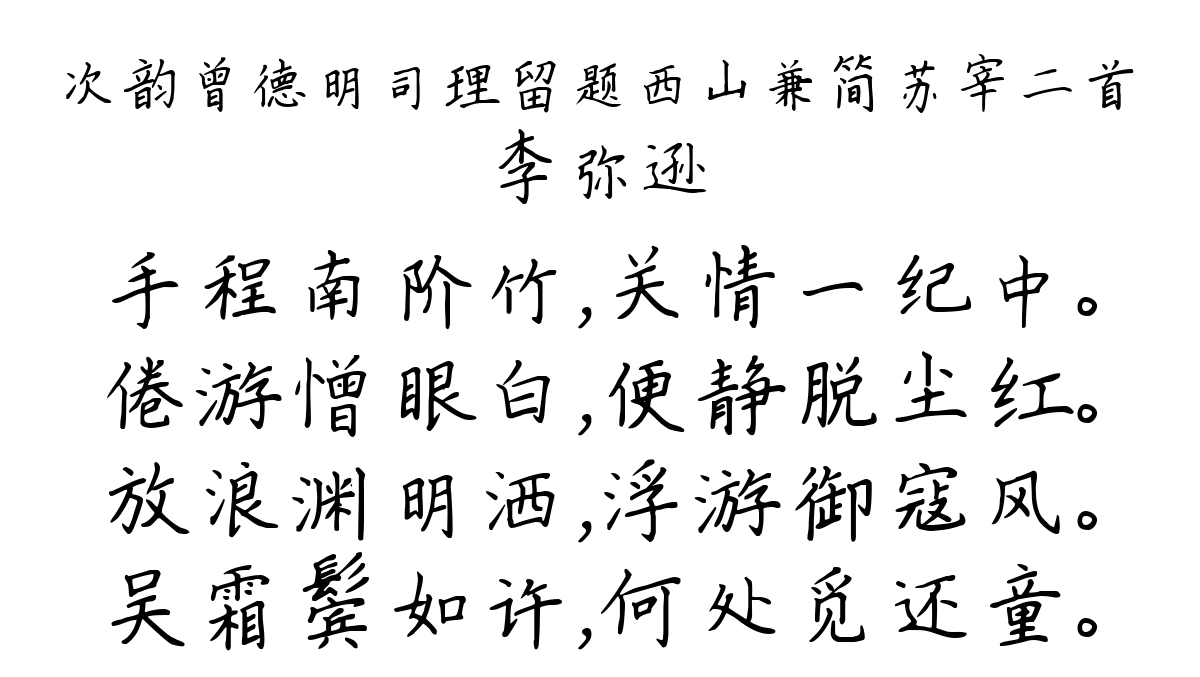 次韵曾德明司理留题西山兼简苏宰二首
李弥逊
手程南阶竹,关情一纪中。
倦游憎眼白,便静脱尘红。
放浪渊明洒,浮游御寇风。
吴霜鬓如许,何处觅还童。